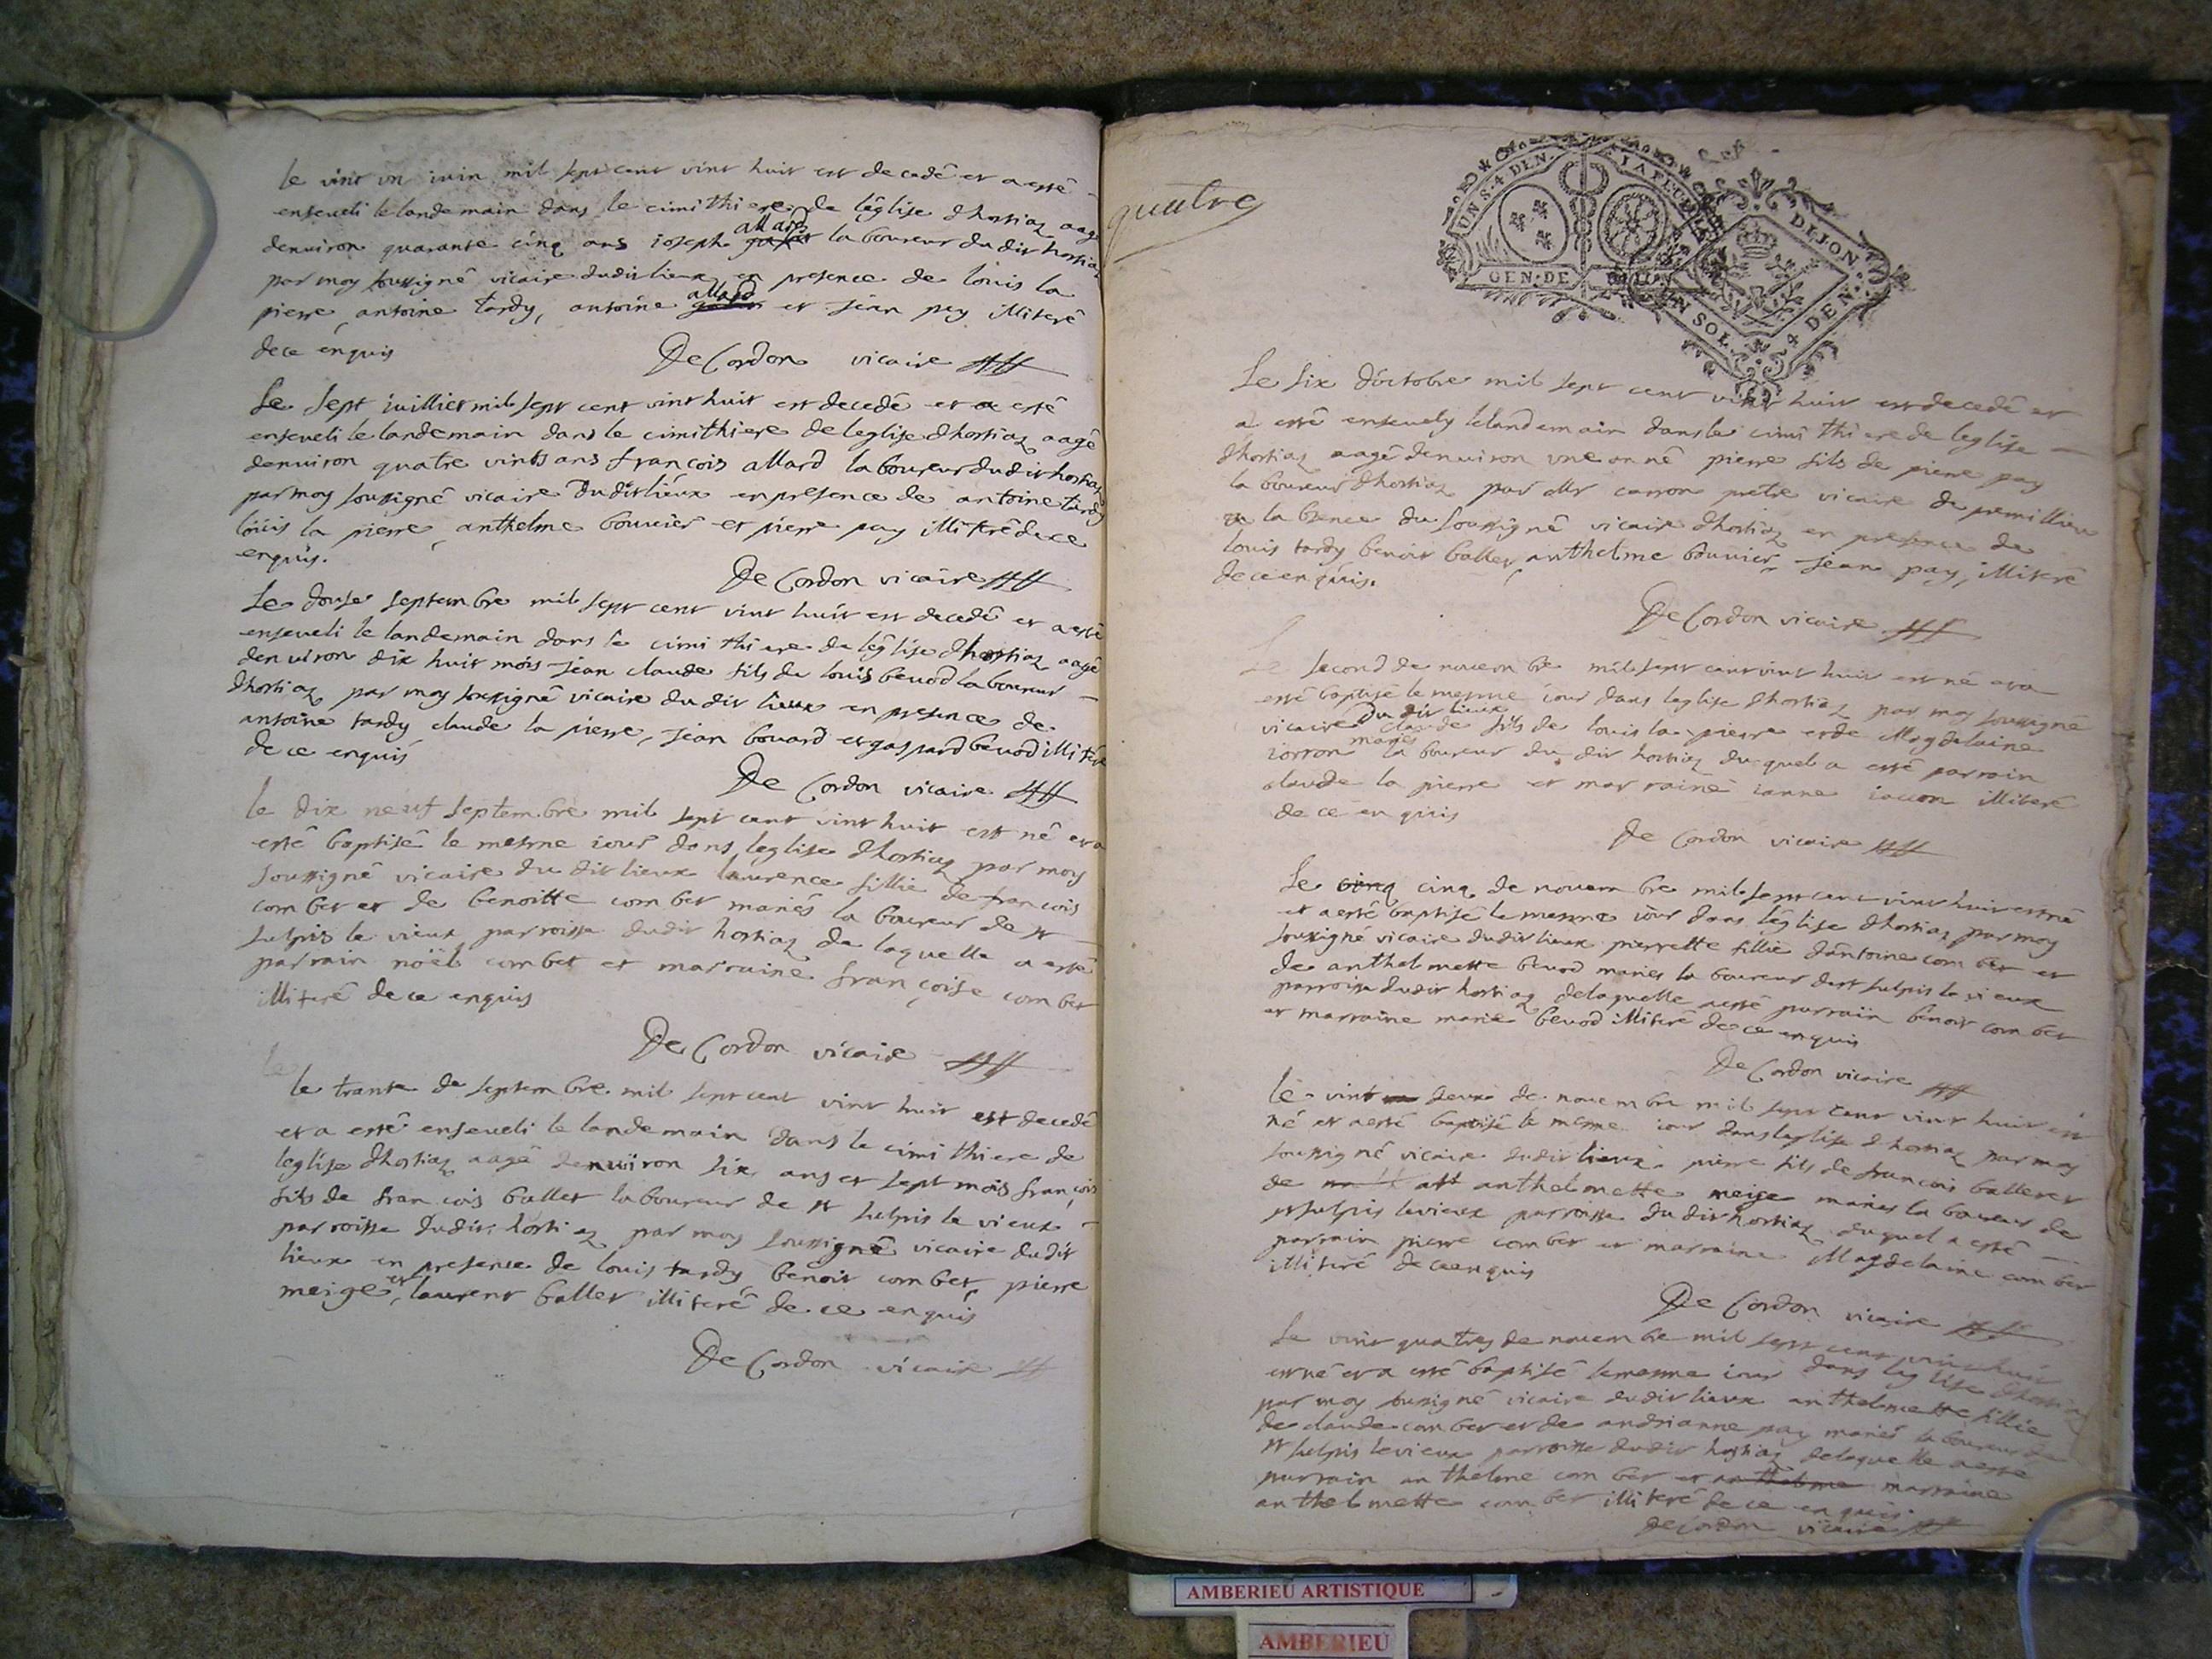 le vint un iuin mil sept cent vint huit est decedé et a esté
enseveli le landemain dans le cimithiere de léglise d'hostiaz aagé
denuiron quarante cinq ans ioseph allard laboureur dudit hostiaz
par moy soussigné vicaire dudit lieux en presence de loüis la
pierre, antoine tardy, antoine allard et jean pey illiteré
de ce enquis
De Cordon vicaire
Le sept iuillict mil sept cent vint huit est decedé et a esté
enseveli le landemain dans le cimithiere de leglise d'hostiaz aagé
denuiron quatre vints ans francois allard laboureur dudit hostiaz
par moy soussigné vicaire dudit lieux en presence de antoine tardy
loüis la pierre, anthelme bouuier et pierre pay illiteré de ce
enquis.
De Cordon vicaire
Le douse septembre mil sept cent vint huit est decedé et a esté
enseveli le landemain dans le cimithiere de léglise d'hostiaz aagé
denuiron dix huit mois jean claude fils de louis beuod laboureur
d'hostiaz par moy soussigné vicaire du dit lieux en presence de
antoine tardy claude la pierre, jean bouard et gaspard beuod illiteré
de ce enquis
De Cordon vicaire
le dix neuf septembre mil sept cent vint huit est né et a
esté baptisé le mesme iour dans leglise d'hostiaz par moy
soussigné vicaire du dit lieux laurence fillie de francois
combet et de benoitte combet mariés laboureur de st
sulpis le vieux parroisse dudit hostiaz de laquelle a esté
parrain noël combet et marraine françoise combet
illiteré de ce enquis
De Cordon vicaire
le trante de septembre mil sept cent vint huit est decedé
et a esté enseveli le landemain dans le cimithiere de
leglise d'hostiaz aagé denuiron six ans et sept mois françois
fils de francois ballet laboureur de st sulpis le vieux
parroisse dudit hostiaz par moy soussigné vicaire dudit
lieux en presence de louis tardy benoit combet, pierre
meige, et laurent ballet illiteré de ce enquis
De Cordon vicaire
quatre
UN S. 4 DEN. LA FEUILLE
GEN. DE
DIJON.
UN SOL. 4 DEN.
Le six d'octobre mil sept cent vint huit est decedé et
a esté ensevely le landemain dans le cimithiere de leglise
d'hostiaz aagé denuiron une anné pierre fils de pierre pay
laboureur d'hostiaz par Mr carron pretre vicaire de premillieu
a labsence du soussigné vicaire d'hostiaz en presence de
louis tardy benoit ballet, anthelme bouuier, jean pay, illiteré
de ce enquis.
De Cordon vicaire
Le second de nouembre mil sept cent vint huit est né et a
esté baptisé le mesme iour dans leglise d'hostiaz par moy soussigné
vicaire du dit lieux claude fils de louis la pierre et de Magdelaine
iorron mariés laboureur du dit hostiaz duquel a esté parrain
claude la pierre et marraine ianne illiteré
de ce enquis
De Cordon vicaire
Le cinq cinq de nouembre mil sept cent vint huit est né
et a esté baptisé le mesme iour dans léglise d'hostiaz par moy
soussigné vicaire dudit lieux pierrette fillie d'antoine combet et
de anthelmette beuod mariés laboureur de st sulpis le vieux
parroisse dudit hostiaz de laquelle a esté parrain benoit combet
et marraine marie beuod illiteré de ce enquis
De Cordon vicaire
le vint deux de nouembre mil sept cent vint huit est
né et a esté baptisé le mesme iour dans leglise d'hostiaz par moy
soussigné vicaire dudit lieux pierre fils de francois ballet et
de anthelmette meige mariés laboureur de
st sulpis le vieux parroisse du dit hostiaz duquel a esté
parrain pierre combet et marraine Magdelaine combet
illiteré de ce enquis
De Cordon vicaire
Le vint quatres de nouembre mil sept cent vint huit
est né et a esté baptisé le mesme iour dans leglise d'hostiaz
par moy soussigné vicaire dudit lieux anthelmette fillie
de claude combet et de andrianne pay mariés laboureur de
st sulpis le vieux parroisse dudit hostiaz de laquelle a esté
parrain anthelme combet et anthelme marraine
anthelmette combet illiteré de ce enquis
De Cordon vicaire
AMBERIEU ARTISTIQUE
AMBERIEU